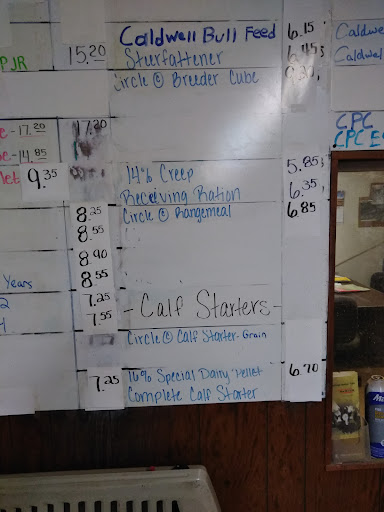 Caldwell Bull Feed 6.15
Caldwe
PJR 15.20 Steerfattener 6.45
Caldwel
Circle C Breeder Cube
17.20 17.20
CPC
14.85
CPC E
9.35 14% Creep 5.85
Receiving Ration 6.35
8.25 Circle C Rangemeal 6.85
8.55
8.90
Years 8.55
2 7.25
- Calf Starters -
7.55
Circle C Calf Starter - Grain
7.25 16% Special Dairy Pellet 6.70
Complete Calf Starter